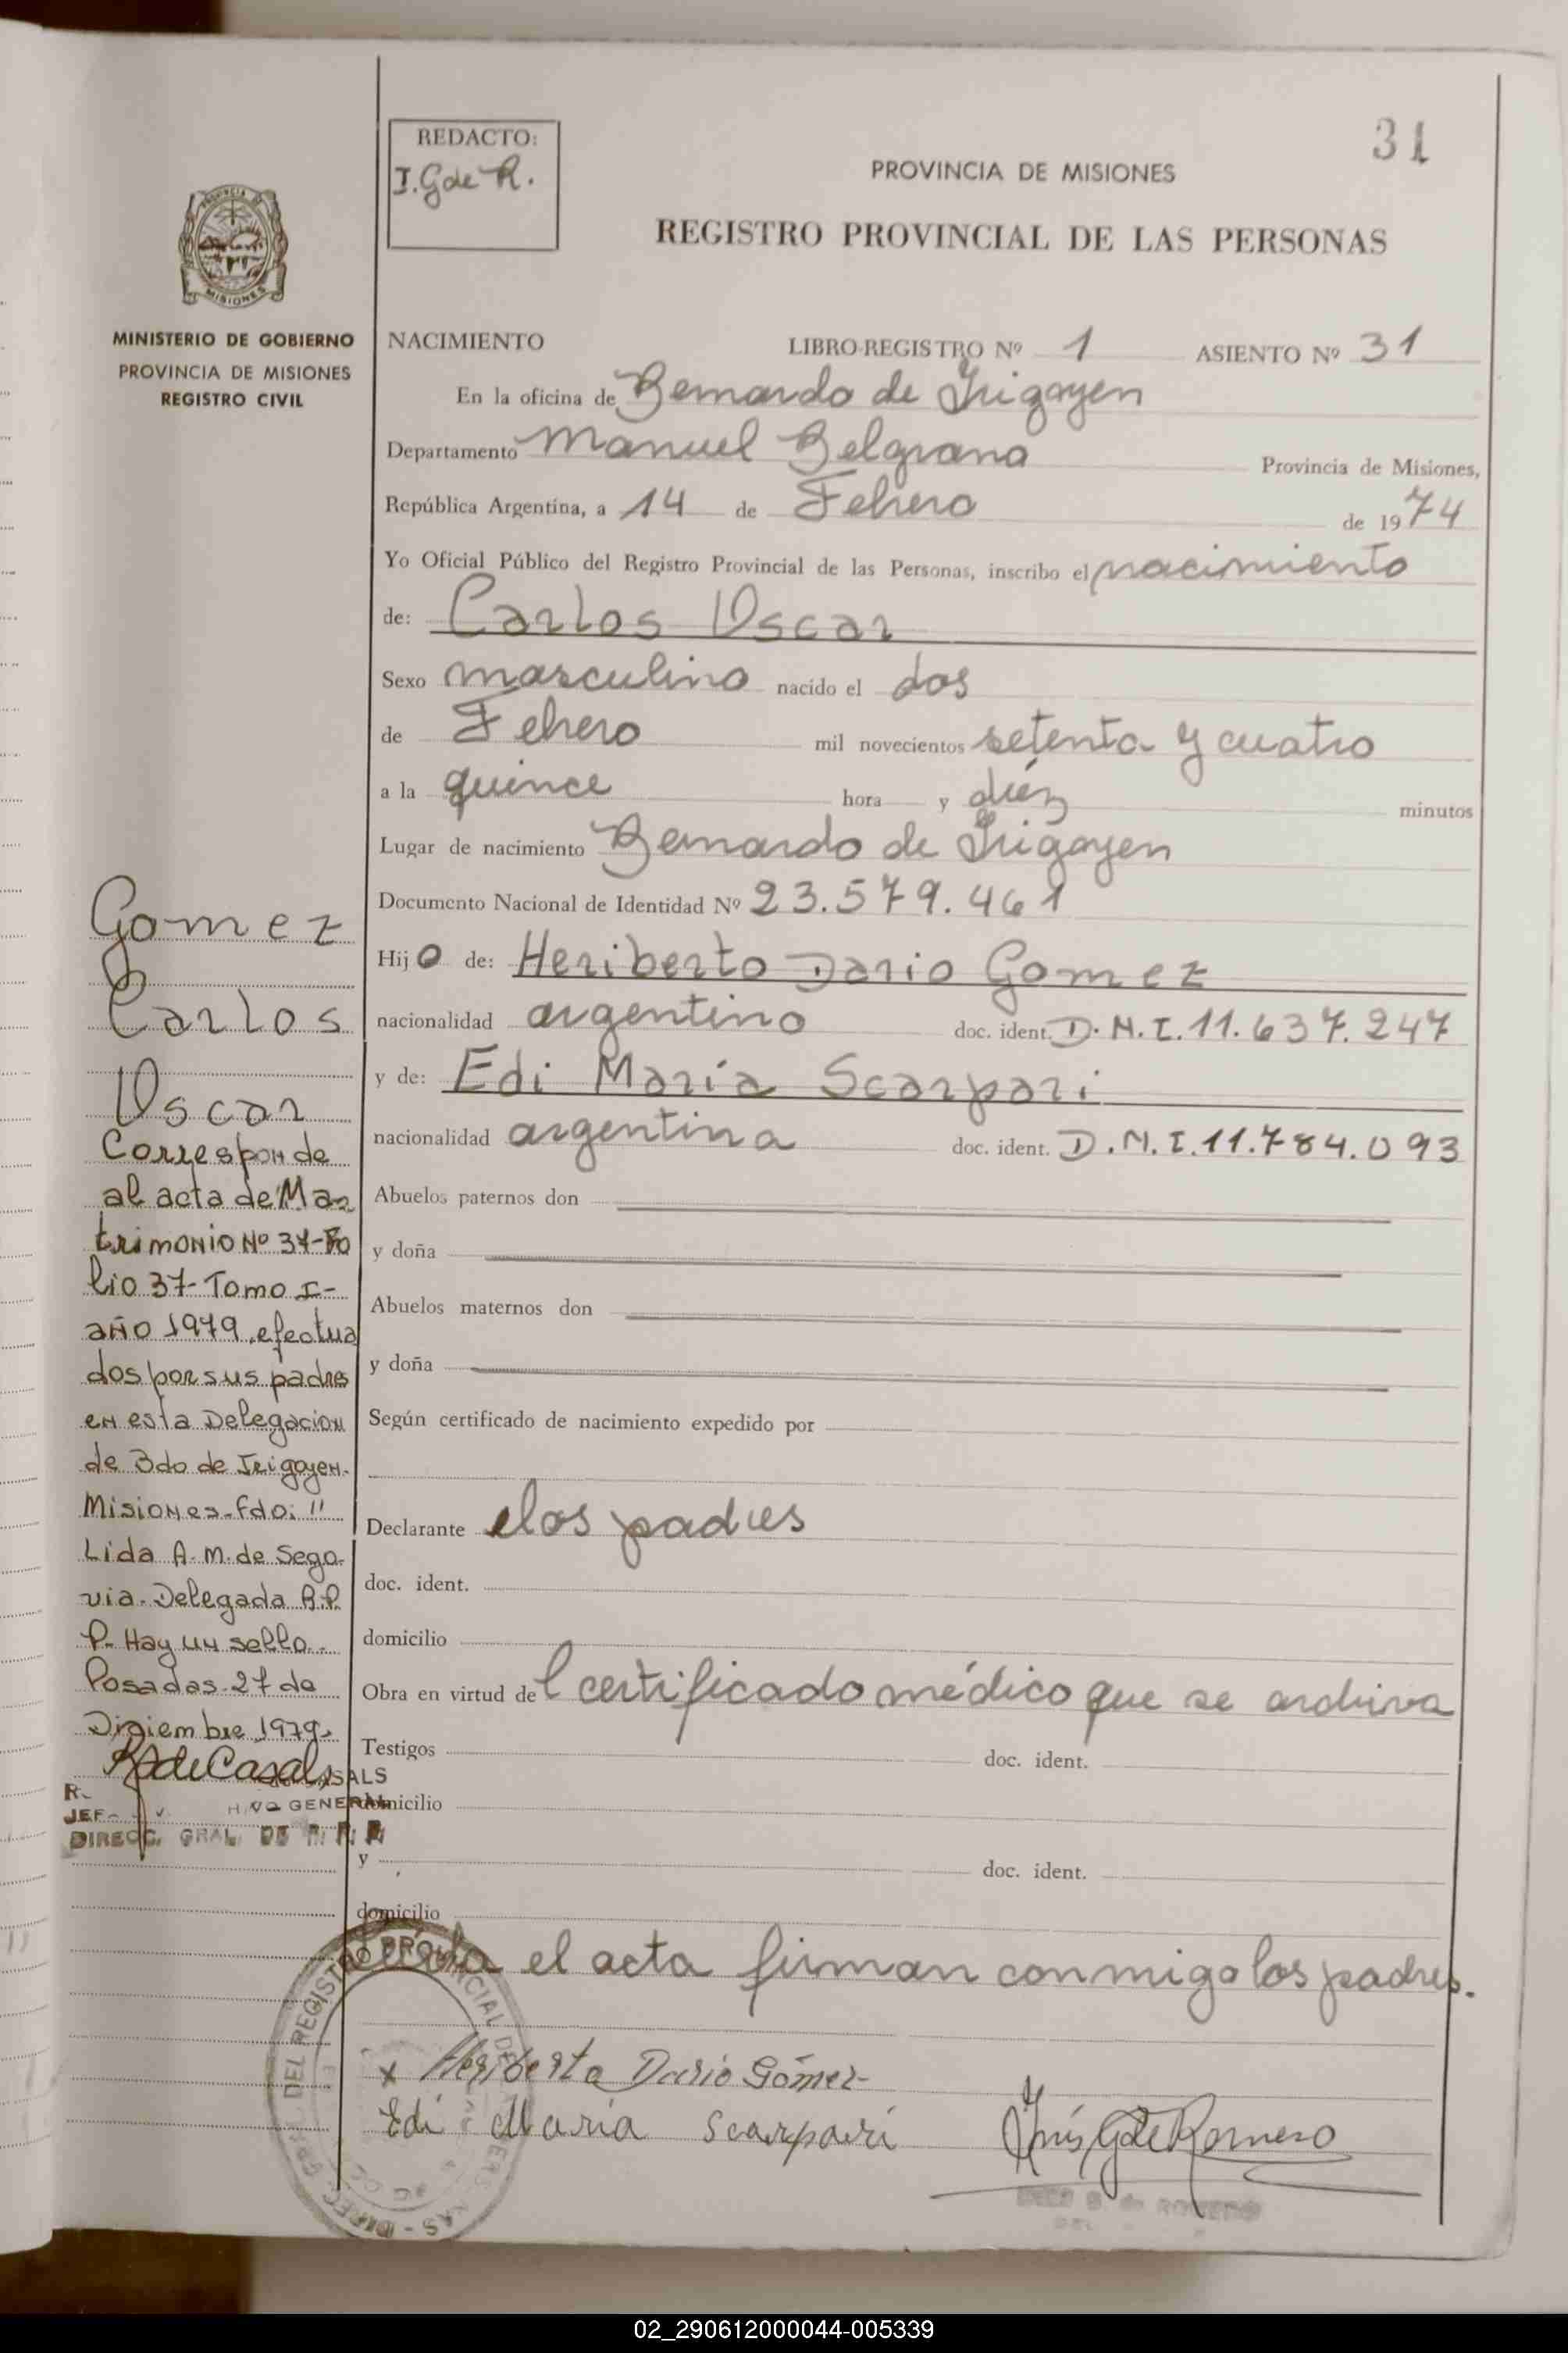 31
REDACTO:
I. G de R.
PROVINCIA DE MISIONES
REGISTRO PROVINCIAL DE LAS PERSONAS
MISIONES
MINISTERIO DE GOBIERNO
PROVINCIA DE MISIONES
REGISTRO CIVIL
NACIMIENTO LIBRO-REGISTRO Nº 1 ASIENTO Nº 31
En la oficina de Bernardo de Irigoyen
Departamento Manuel Belgrano Provincia de Misiones,
República Argentina, a 14 de Febrero de 1974
Yo Oficial Público del Registro Provincial de las Personas, inscribo el nacimiento
de: Carlos Oscar
Sexo masculino nacido el dos
de Febrero mil novecientos setenta y cuatro
a la quince hora y diéz minutos
Lugar de nacimiento Bernardo de Irigoyen
Documento Nacional de Identidad Nº 23.579.461
Hijo de: Heriberto Dario Gomez
nacionalidad argentino doc. ident. D.N.I. 11.637.247
y de: Edi María Scarpari
nacionalidad argentina doc. ident. D.N.I. 11.784.093
Abuelos paternos don
y doña
Abuelos maternos don
y doña
Según certificado de nacimiento expedido por
Declarante los padres
doc. ident.
domicilio
Obra en virtud del certificado médico que se archiva
Testigos doc. ident.
domicilio
y doc. ident.
domicilio
Leída el acta firman conmigo los padres.
x Heriberto Dario Gómez
Edi María Scarpari Inés G de Romero
Gomez
Carlos
Oscar
Corresponde
al acta de Ma
trimonio Nº 37-Fo
lio 37-Tomo I-
año 1979, efectua
dos por sus padres
en esta Delegacion
de Bdo de Irigoyen-
Misiones-Fdo: "
Lida A. M. de Sego-
via-Delegada R.P.
P- Hay un sello-
Posadas-27 de
Diciembre 1979-
R A de Casals
DIRECC. GRAL. DE R. P. P.
02_290612000044-005339